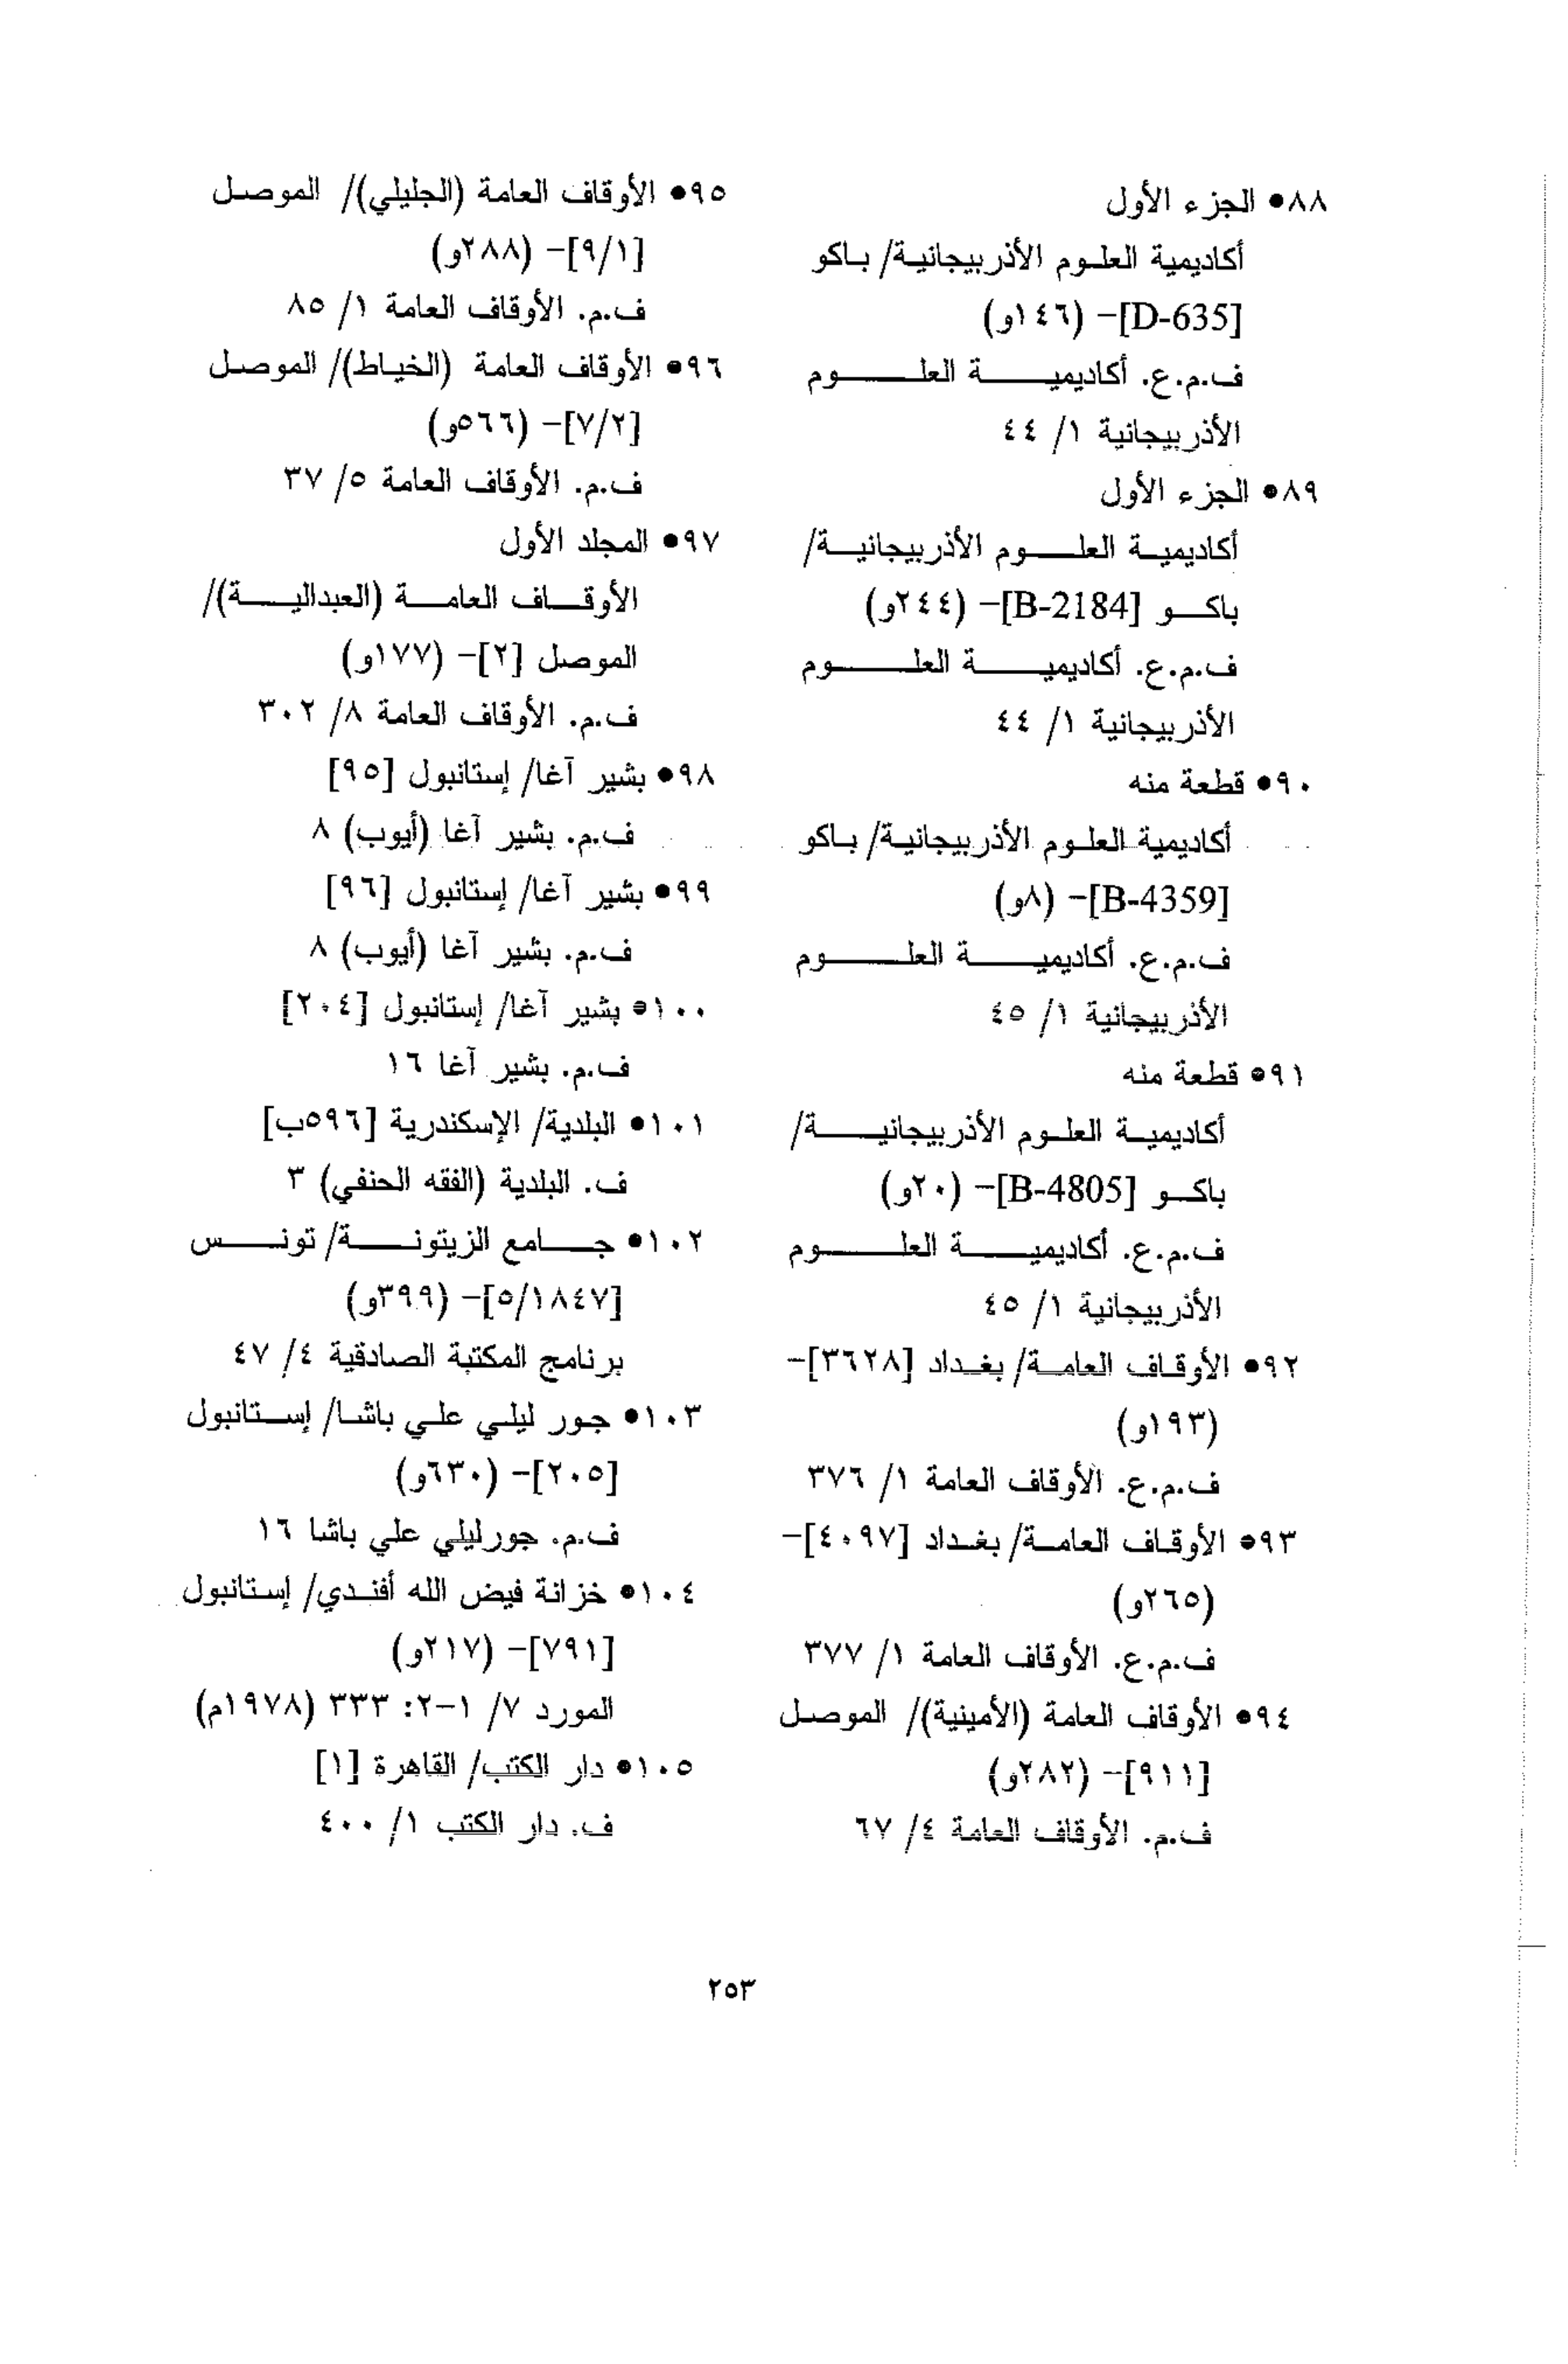 ٨٨• الجزء الأول
أكاديمية العلوم الأذربيجانية/ باكو
[D-635]– (١٤٦و)
ف.م.ع. أكاديمية العلوم
الأذربيجانية ١/ ٤٤
٨٩• الجزء الأول
أكاديمية العلوم الأذربيجانية/
باكو [B-2184]– (٢٤٤و)
ف.م.ع. أكاديمية العلوم
الأذربيجانية ١/ ٤٤
٩٠• قطعة منه
أكاديمية العلوم الأذربيجانية/ باكو
[B-4359]– (٨و)
ف.م.ع. أكاديمية العلوم
الأذربيجانية ١/ ٤٥
٩١• قطعة منه
أكاديمية العلوم الأذربيجانية/
باكو [B-4805]– (٢٠و)
ف.م.ع. أكاديمية العلوم
الأذربيجانية ١/ ٤٥
٩٢• الأوقاف العامة/ بغداد [٣٦٢٨]–
(١٩٣و)
ف.م.ع. الأوقاف العامة ١/ ٣٧٦
٩٣• الأوقاف العامة/ بغداد [٤٠٩٧]–
(٢٦٥و)
ف.م.ع. الأوقاف العامة ١/ ٣٧٧
٩٤• الأوقاف العامة (الأمينية)/ الموصل
[٩١١]– (٢٨٢و)
ف.م. الأوقاف العامة ٤/ ٦٧
٩٥• الأوقاف العامة (الجليلي)/ الموصل
[٩/١]– (٢٨٨و)
ف.م. الأوقاف العامة ١/ ٨٥
٩٦• الأوقاف العامة (الخياط)/ الموصل
[٧/٢]– (٥٦٦و)
ف.م. الأوقاف العامة ٥/ ٣٧
٩٧• المجلد الأول
الأوقاف العامة (العبدالية)/
الموصل [٢]– (١٧٧و)
ف.م. الأوقاف العامة ٨/ ٣٠٢
٩٨• بشير آغا/ إستانبول [٩٥]
ف.م. بشير آغا (أيوب) ٨
٩٩• بشير آغا/ إستانبول [٩٦]
ف.م. بشير آغا (أيوب) ٨
١٠٠• بشير آغا/ إستانبول [٢٠٤]
ف.م. بشير آغا ١٦
١٠١• البلدية/ الإسكندرية [٥٩٦ب]
ف. البلدية (الفقه الحنفي) ٣
١٠٢• جامع الزيتونة/ تونس
[٥/١٨٤٧]– (٣٩٩و)
برنامج المكتبة الصادقية ٤/ ٤٧
١٠٣• جور ليلي علي باشا/ إستانبول
[٢٠٥]– (٦٣٠و)
ف.م. جورليلي علي باشا ١٦
١٠٤• خزانة فيض الله أفندي/ إستانبول
[٧٩١]– (٢١٧و)
المورد ٧/ ١–٢: ٣٣٣ (١٩٧٨م)
١٠٥• دار الكتب/ القاهرة [١]
ف. دار الكتب ١/ ٤٠٠
٢٥٣